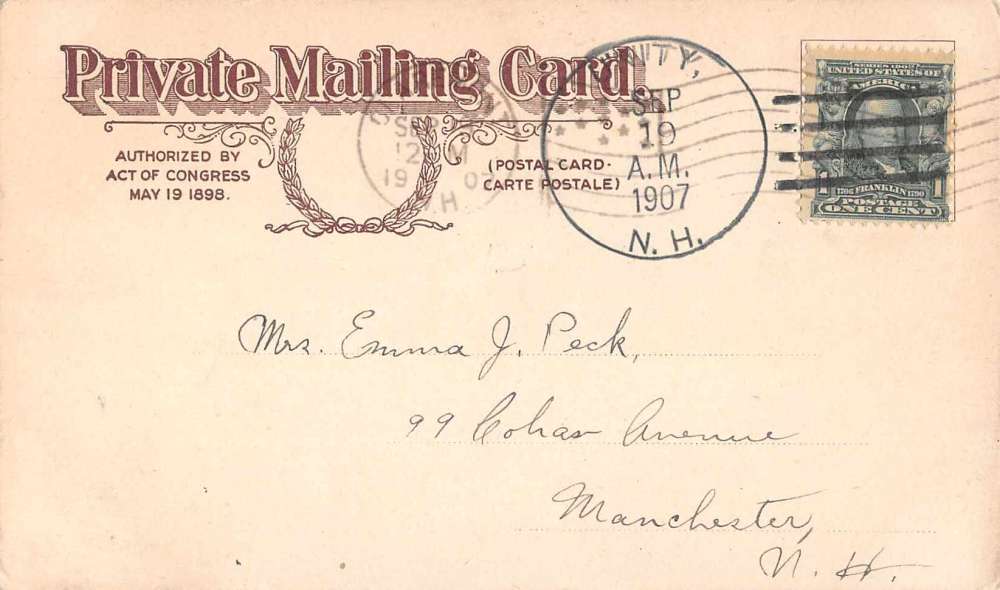 Private Mailing Card.
AUTHORIZED BY
ACT OF CONGRESS
MAY 19 1898.
(POSTAL CARD-
CARTE POSTALE)
UNITY,
SEP
19
A.M.
1907
N. H.
SERIES 1902
UNITED STATES OF
AMERICA
1706 FRANKLIN 1790
1 1
POSTAGE
ONE CENT
Mrs. Emma J. Peck,
99 Cohas Avenue
Manchester,
N. H.